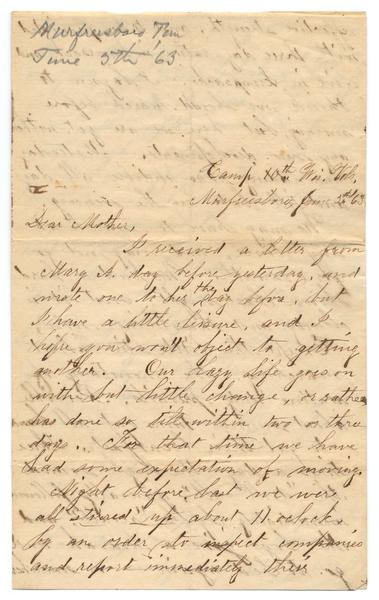 Murfreesboro Tenn
June 5th '63
Camp 10th Wis. Vol.
Murfreesboro, June 5th 63
Dear Mother,
I received a letter from
Mary A. day before yesterday, and
wrote one to her the day before, but
I have a little leisure, and I
hope you won't object to getting
another. Our lazy life goes on
with but little change, or rather
has done so till within two or three
days. For that time we have
had some expectation of moving.
Night before last we were
all stired up about 11 oclock,
by an order to inspect companies
and report immediately their